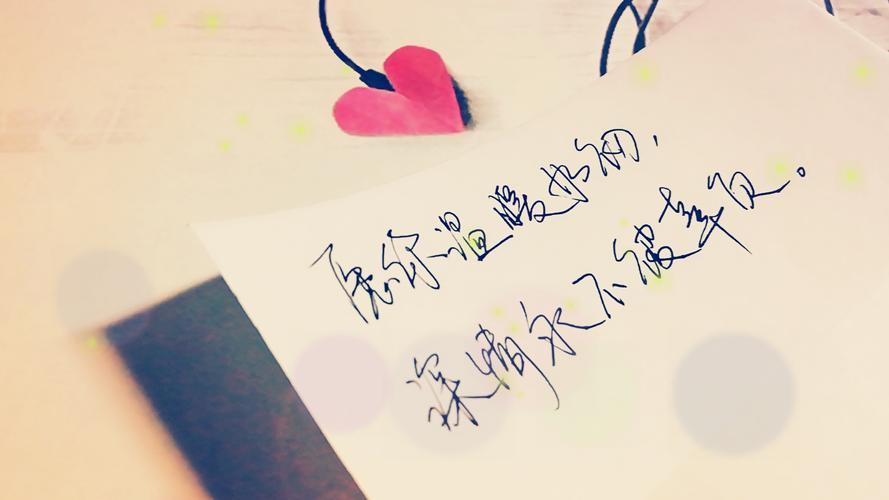 愿你温暖如初,
深情永不被辜负。